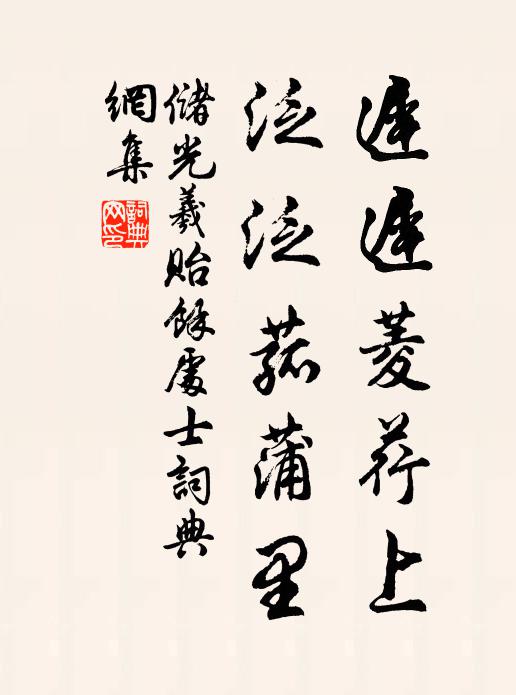 遲遲菱荇上
泛泛菰蒲里
儲光羲貽餘處士詞典
網集
詞典
网印